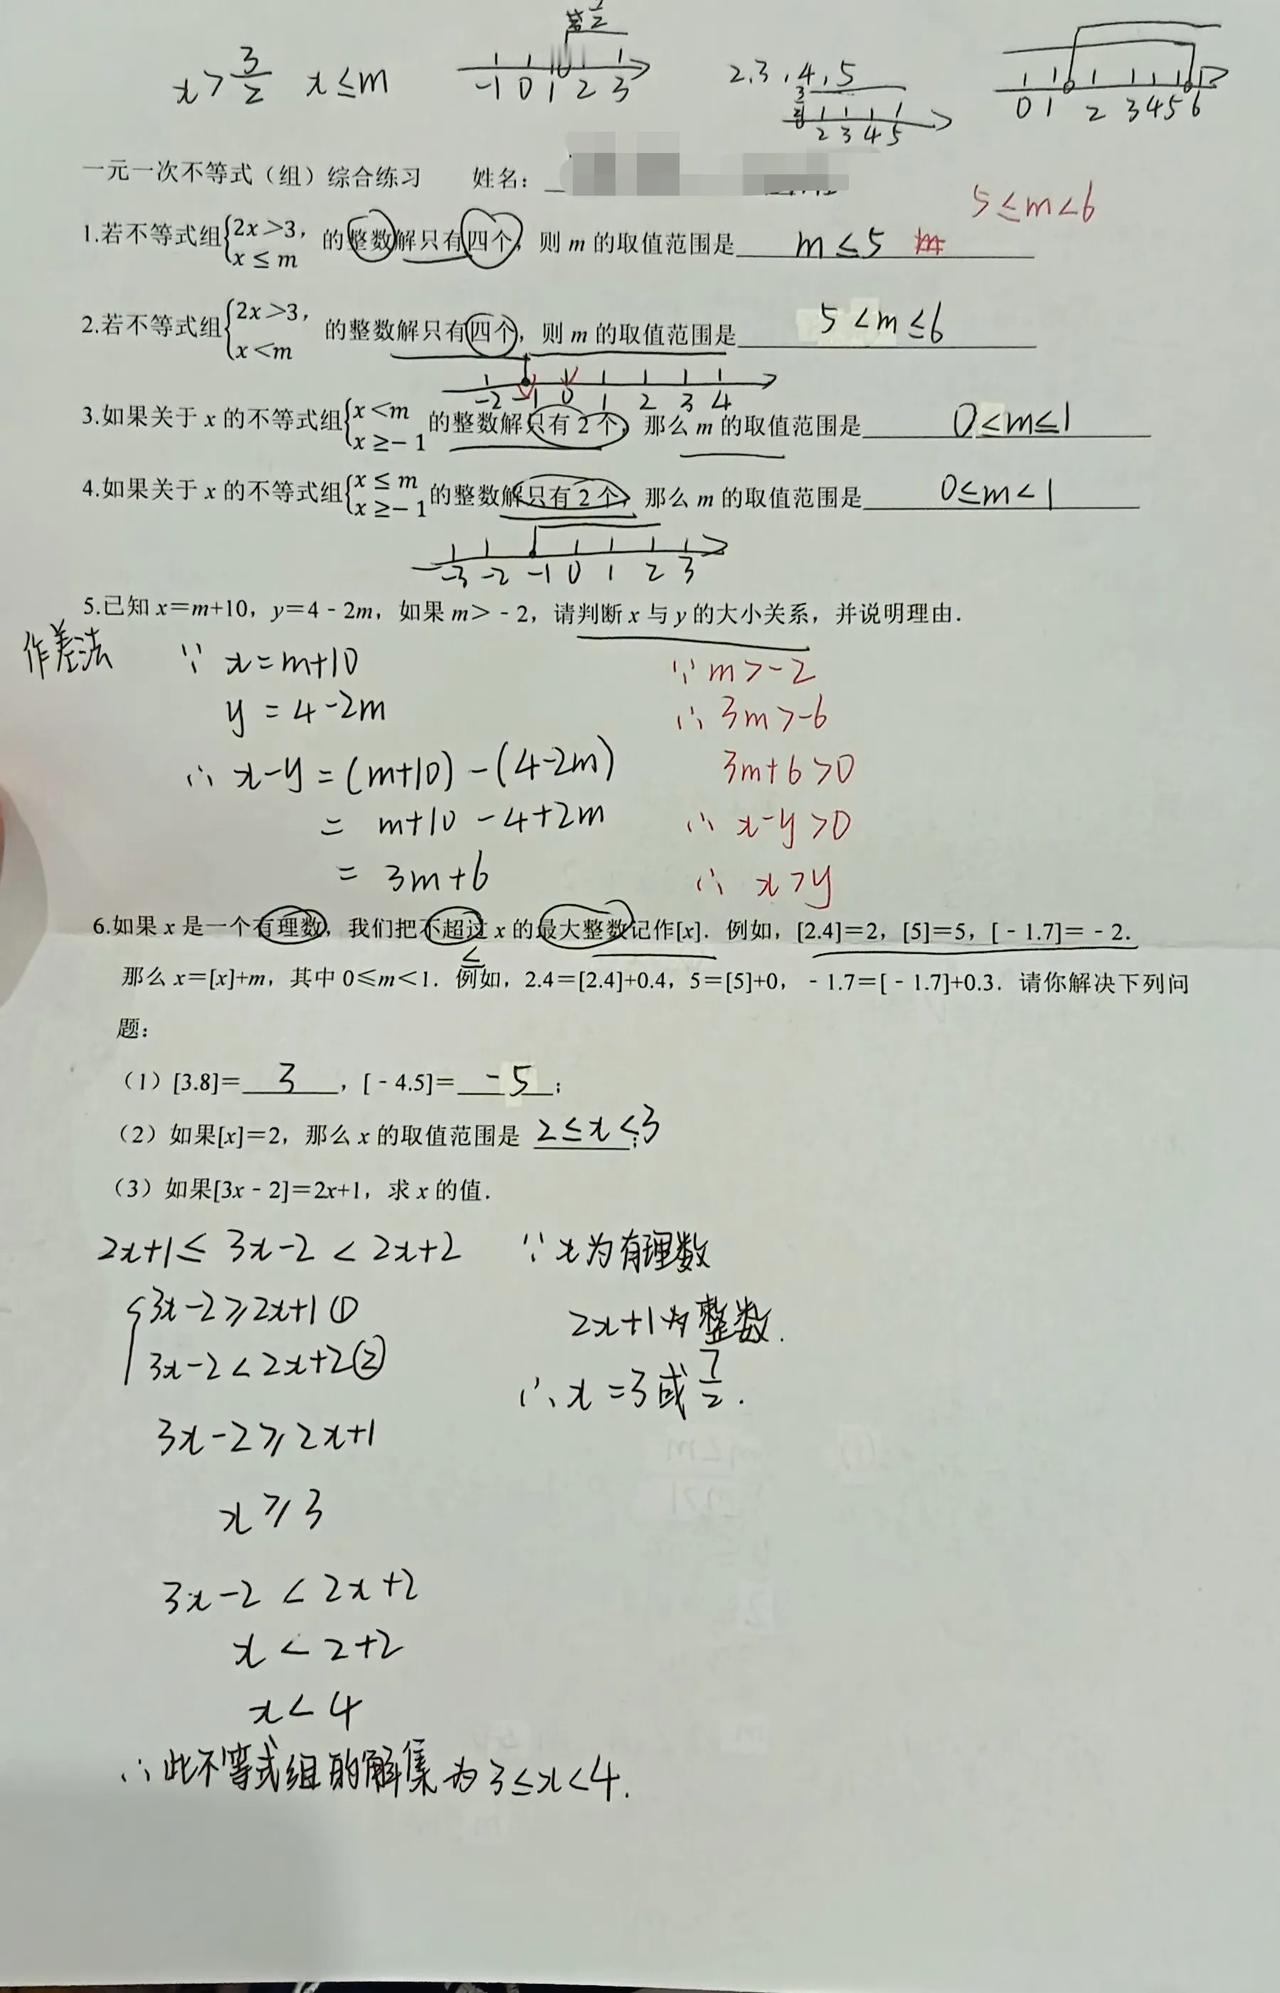 x>3/2 x≤m
-1 0 1 2 3
2,3,4,5
2 3 4 5
0 1 2 3 4 5 6
一元一次不等式（组）综合练习 姓名：
5≤m<6
1.若不等式组{2x>3, x≤m 的整数解只有四个，则 m 的取值范围是 m≤5
2.若不等式组{2x>3, x<m 的整数解只有四个，则 m 的取值范围是 5<m≤6
-2 -1 0 1 2 3 4
3.如果关于 x 的不等式组{x<m x≥-1 的整数解只有 2 个，那么 m 的取值范围是 0≤m≤1
4.如果关于 x 的不等式组{x≤m x≥-1 的整数解只有 2 个，那么 m 的取值范围是 0≤m<1
-3 -2 -1 0 1 2 3
5.已知 x=m+10，y=4-2m，如果 m>-2，请判断 x 与 y 的大小关系，并说明理由.
作差法
∵ x=m+10
y=4-2m
∴ x-y=(m+10)-(4-2m)
= m+10-4+2m
= 3m+6
∵ m>-2
∴ 3m>-6
3m+6>0
∴ x-y>0
∴ x>y
6.如果 x 是一个有理数，我们把不超过 x 的最大整数记作[x]. 例如，[2.4]=2，[5]=5，[-1.7]=-2.
≤
那么 x=[x]+m，其中 0≤m<1. 例如，2.4=[2.4]+0.4，5=[5]+0，-1.7=[-1.7]+0.3. 请你解决下列问
题：
（1）[3.8]= 3 ，[-4.5]= -5 ；
（2）如果[x]=2，那么 x 的取值范围是 2≤x<3 ；
（3）如果[3x-2]=2x+1，求 x 的值.
2x+1≤3x-2<2x+2
{3x-2≥2x+1①
3x-2<2x+2②
3x-2≥2x+1
x≥3
3x-2<2x+2
x<2+2
x<4
∴此不等式组的解集为3≤x<4.
∵x为有理数
2x+1为整数.
∴x=3或7/2.